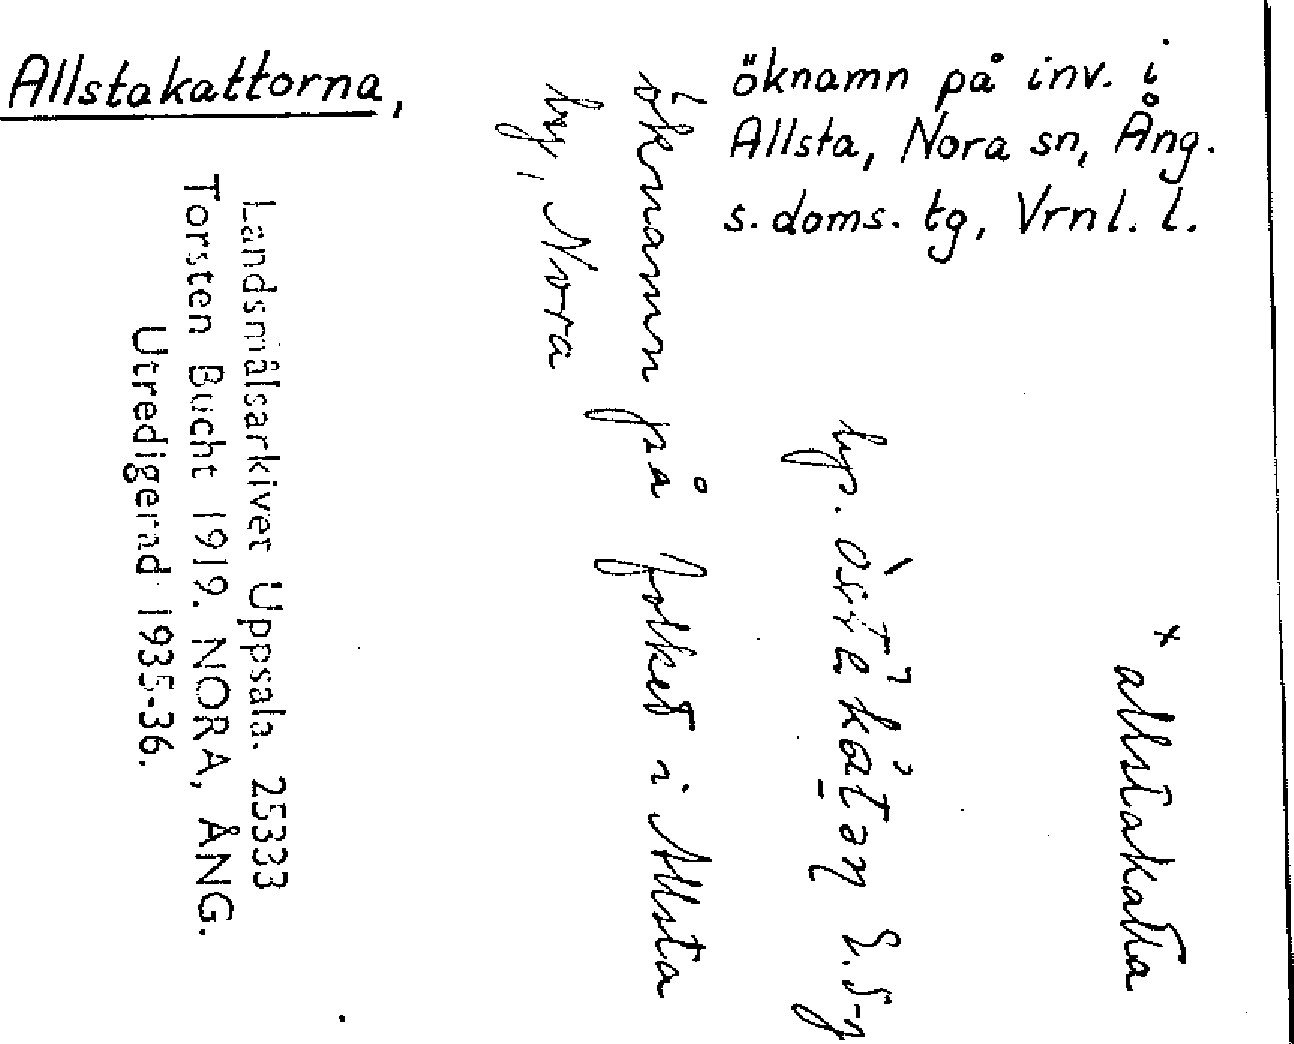 Allstakattorna,
öknamn på inv. i
Allsta, Nora sn, Ång.
s. doms. tg, Vrnl. l.
× allstakatta
hp.
öknamn på folket i Allsta
by, Nora
Landsmålsarkivet Uppsala. 25333
Torsten Bucht 1919. NORA, ÅNG.
Utredigerad 1935-36.